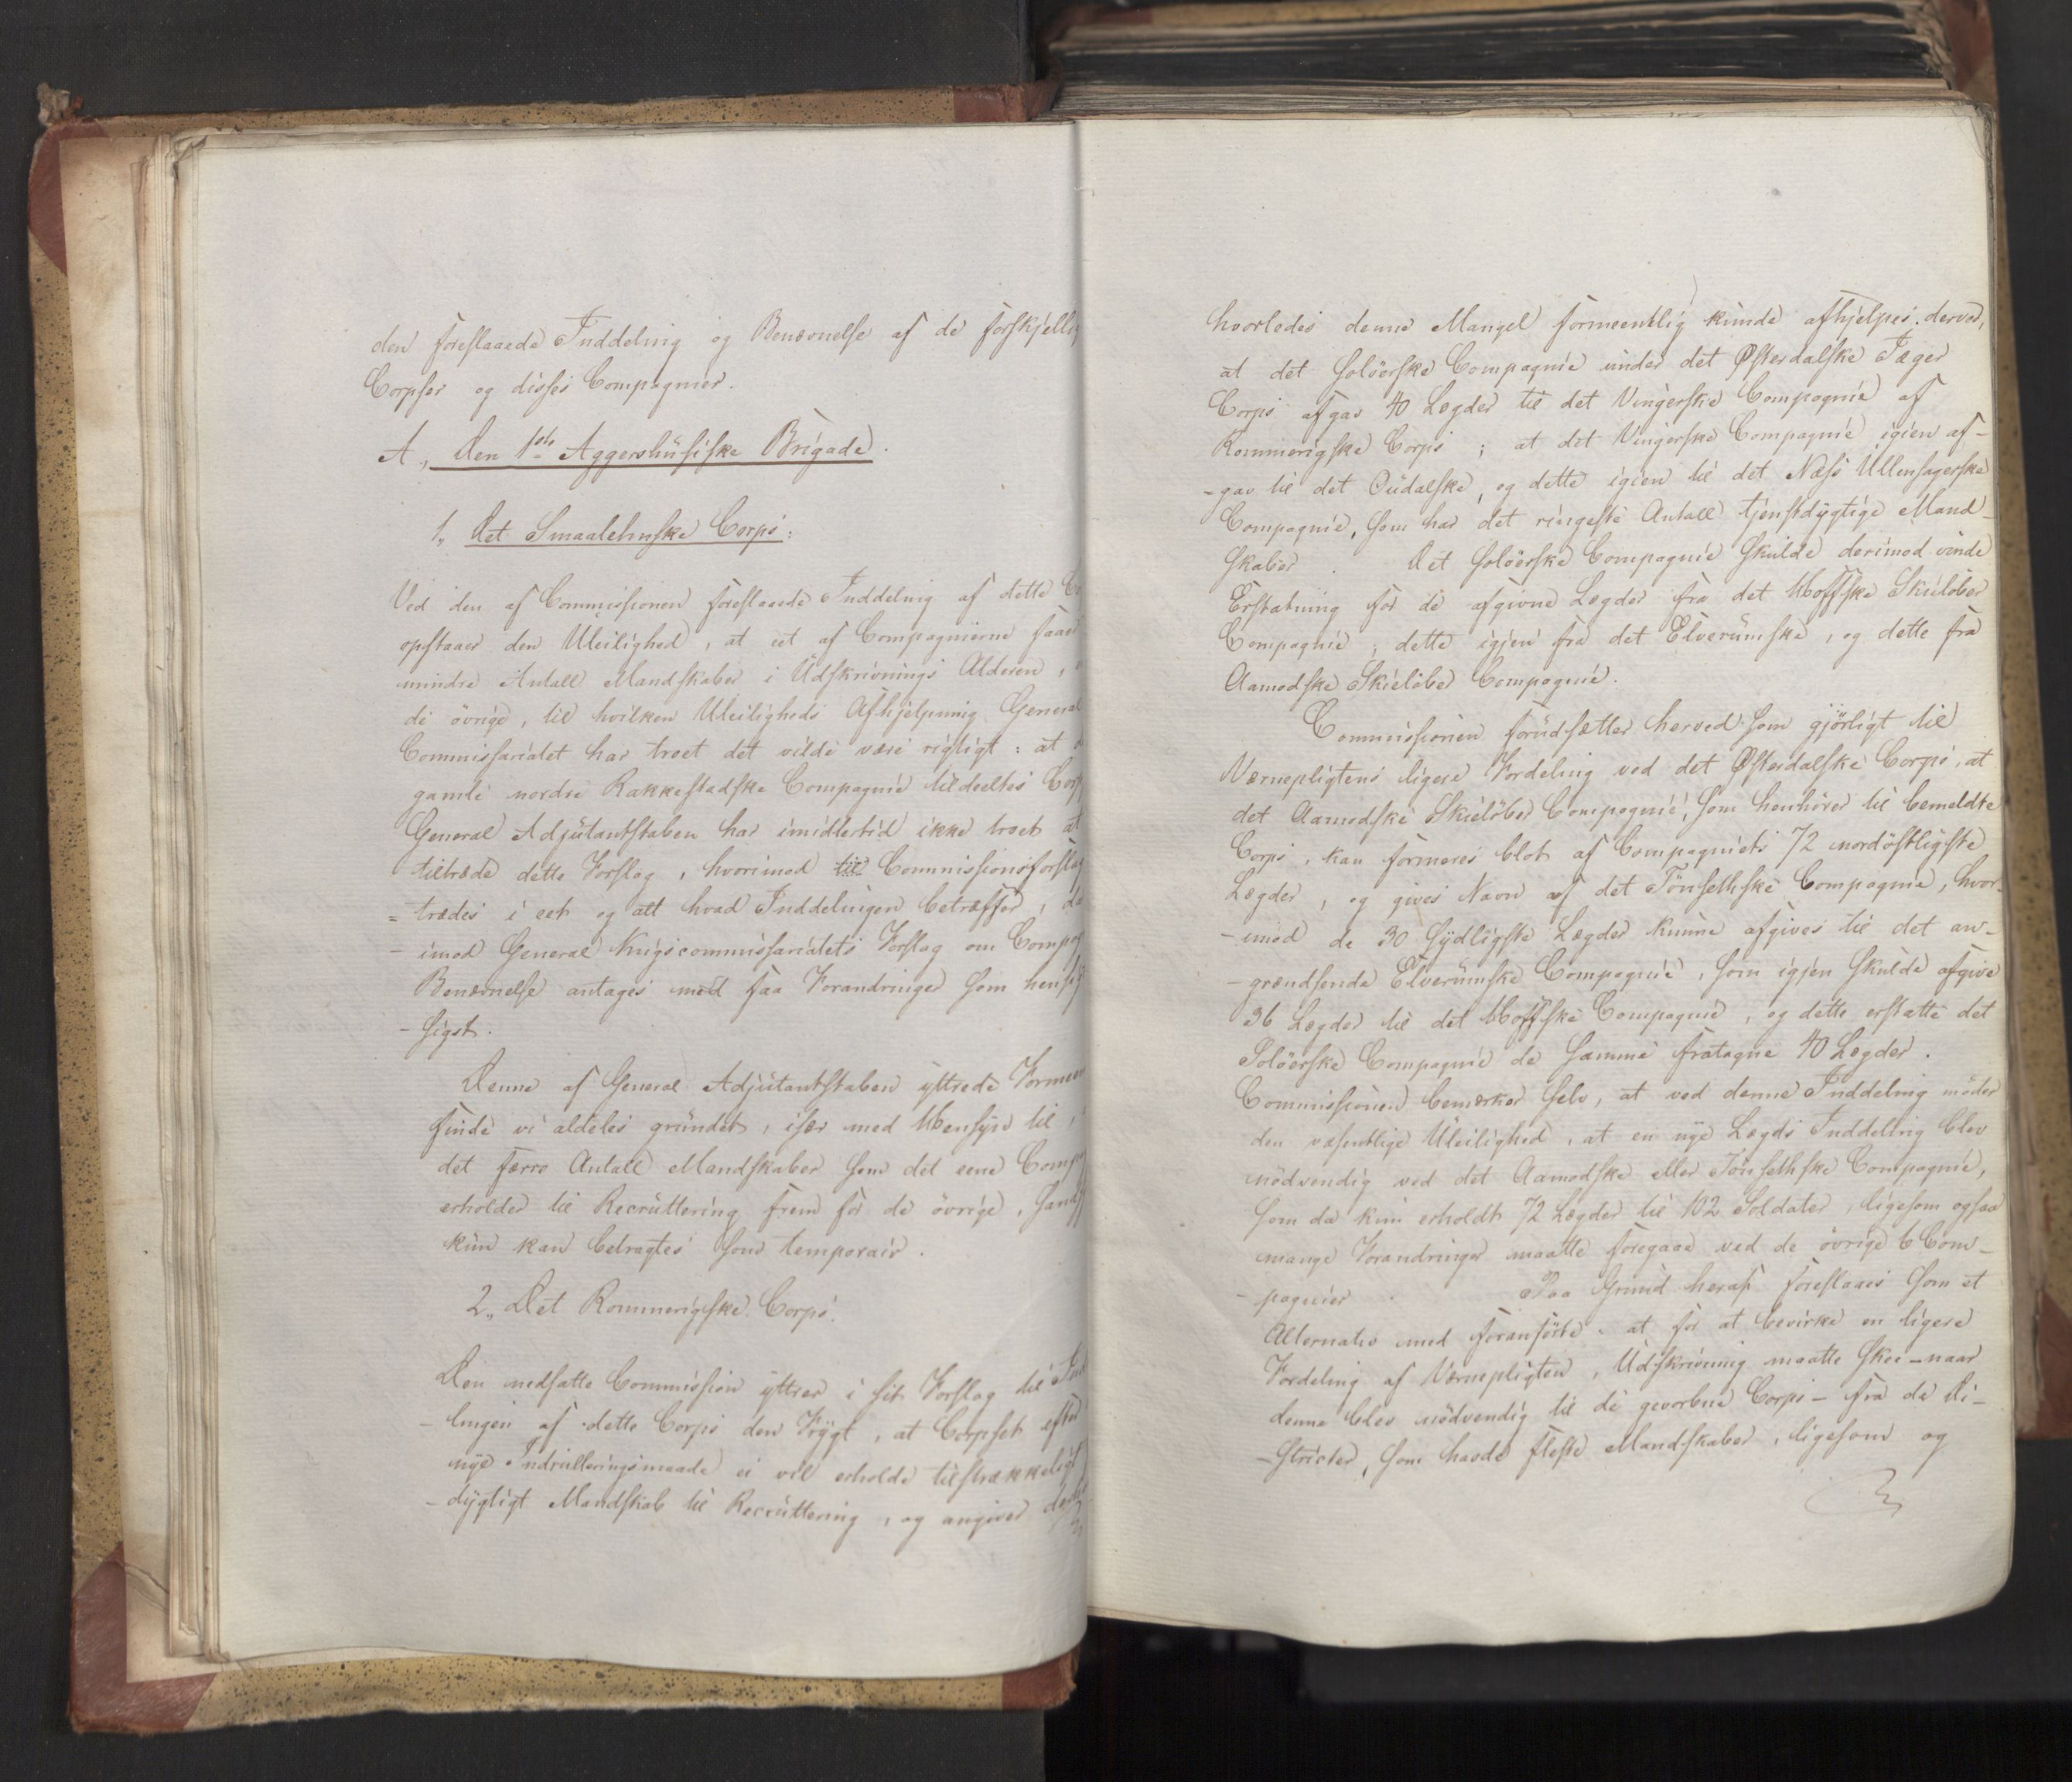 den foreslaaede Inddeling og Benævnelse af de forskjellig
Corpser og disses Compagnier.
A, Den 1ste Aggershusiske Brigade.
1., Det Smaalehnske Corps:
Ved den af Commissionen foreslaaede Inddeling af dette Co
opstaaer den Uleilighed, at eet af Compagnierne faaer
mindre Antall Mandskaber i Udskrivnings Alderen,
de øvrige, til hvilken Uleiligheds Afhjelpning General
Commissariatet har troet det vilde være rigtigt: at d
gamle nordre Rakkestadske Compagnie tildeeltes Corp
General Adjutantstaben har imidlertid ikke troet at
tiltræde dette Forslag, hvorimod til Commissionsforslag
= trædes i eet og alt hvad Inddelingen betræffer, de
- imod General Krigscommissariatets Forslag om Compag
Benævnelse antages med faa Forandringer som hensig
- sigst.
Denne af General Adjutantstaben yttrede Formeen
finde vi aldeles grundet, især med Hensyn til,
det færre Antall Mandskaber som det eene Comp
erholder til Recruttering frem for de øvrige, sand
kun kan betragtes som temporair.
2., Det Rommerigske Corps.
Den nedsatte Commission yttrer i sit Forslag til Ind
- lingen af dette Corps den Frygt, at Corpset efter
nye Indrulleringsmaade ei vil erholde tilstrækkeligt
- dygtigt Mandskab til Recruttering, og angiver
hvorledes denne Mangel formeentlig kunde afhjelpes derved,
at det Solöerske Compagnie under det Østerdalske Jæger
Corps afgav 40 Lægder til det Vingerske Compagnie af
Rommerigske Corps; at det Vingerske Compagnie igien af-
- gav til det Oudalske, og dette igien til det Næs Ullensagerske
Compagnie, som har det ringeste Antall tjenstdygtige Mand-
skaber. Det Solöerske Compagnie skulde derimod vinde
Erstatning for de afgivne Lægder fra det Hoffske Skielöber
Compagnie, dette igjen fra det Elverumske, og dette fra
Aamodske Skielöber Compagnie.
Commissionen forudsætter herved som gjørligt til
Værnepligtens ligere Fordeling ved det Østerdalske Corps, at
det Aamodske Skielöber Compagnie, som henhörer til bemeldte
Corps, kan formeres blot af Compagniets 72 nordöstligste
Lægder, og gives Navn af det Tönsethske Compagnie, hvor-
- imod de 30 sydligste Lægder kunne afgives til det an-
- grændsende Elverumske Compagnie, som igjen skulde afgive
36 Lægder til det Hoffske Compagnie, og dette erstatte det
Solöerske Compagnie de samme fratagne 40 Lægder.
Commissionen bemærker selv, at ved denne Inddeling möder
den væsentlige Uleilighed, at en nye Lægds Inddeling blev
nödvendig ved det Aamodske eller Tönsethske Compagnie,
som da kun erholdt 72 Lægder til 102 Soldater, ligesom ogsaa
mange Forandringer maatte foregaae ved de övrige 6 Com-
- pagnier. Paa Grund heraf foreslaaes som et
Alternativ med foranförte: at for at bevirke en ligere
Fordeling af Værnepligten, Udskrivning maatte skee - naar
denne blev nödvendig til de gevorbne Corps - fra de Di-
- stricter, som havde fleste Mandskaber, ligesom og